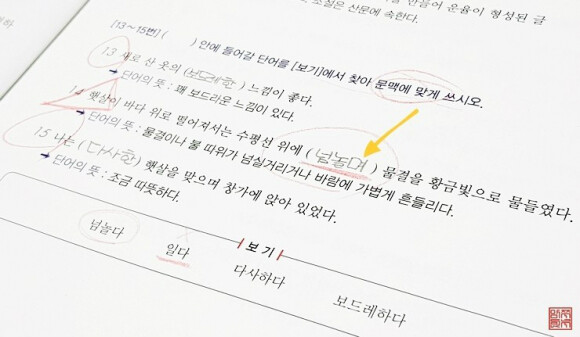 만들어 운율이 형성된 글
소설은 산문에 속한다.
[13~15번] (    ) 안에 들어갈 단어를 [보기]에서 찾아 문맥에 맞게 쓰시오.
13 새로 산 옷의 (보드레한) 느낌이 좋다.
→ 단어의 뜻 : 꽤 보드라운 느낌이 있다.
14 햇살이 바다 위로 떨어져서는 수평선 위에 (넘놀며) 물결을 황금빛으로 물들였다.
→ 단어의 뜻 : 물결이나 불 따위가 넘실거리거나 바람에 가볍게 흔들리다.
15 나는 (다사한) 햇살을 맞으며 창가에 앉아 있었다.
→ 단어의 뜻 : 조금 따뜻하다.
보기
넘놀다 일다 다사하다 보드레하다